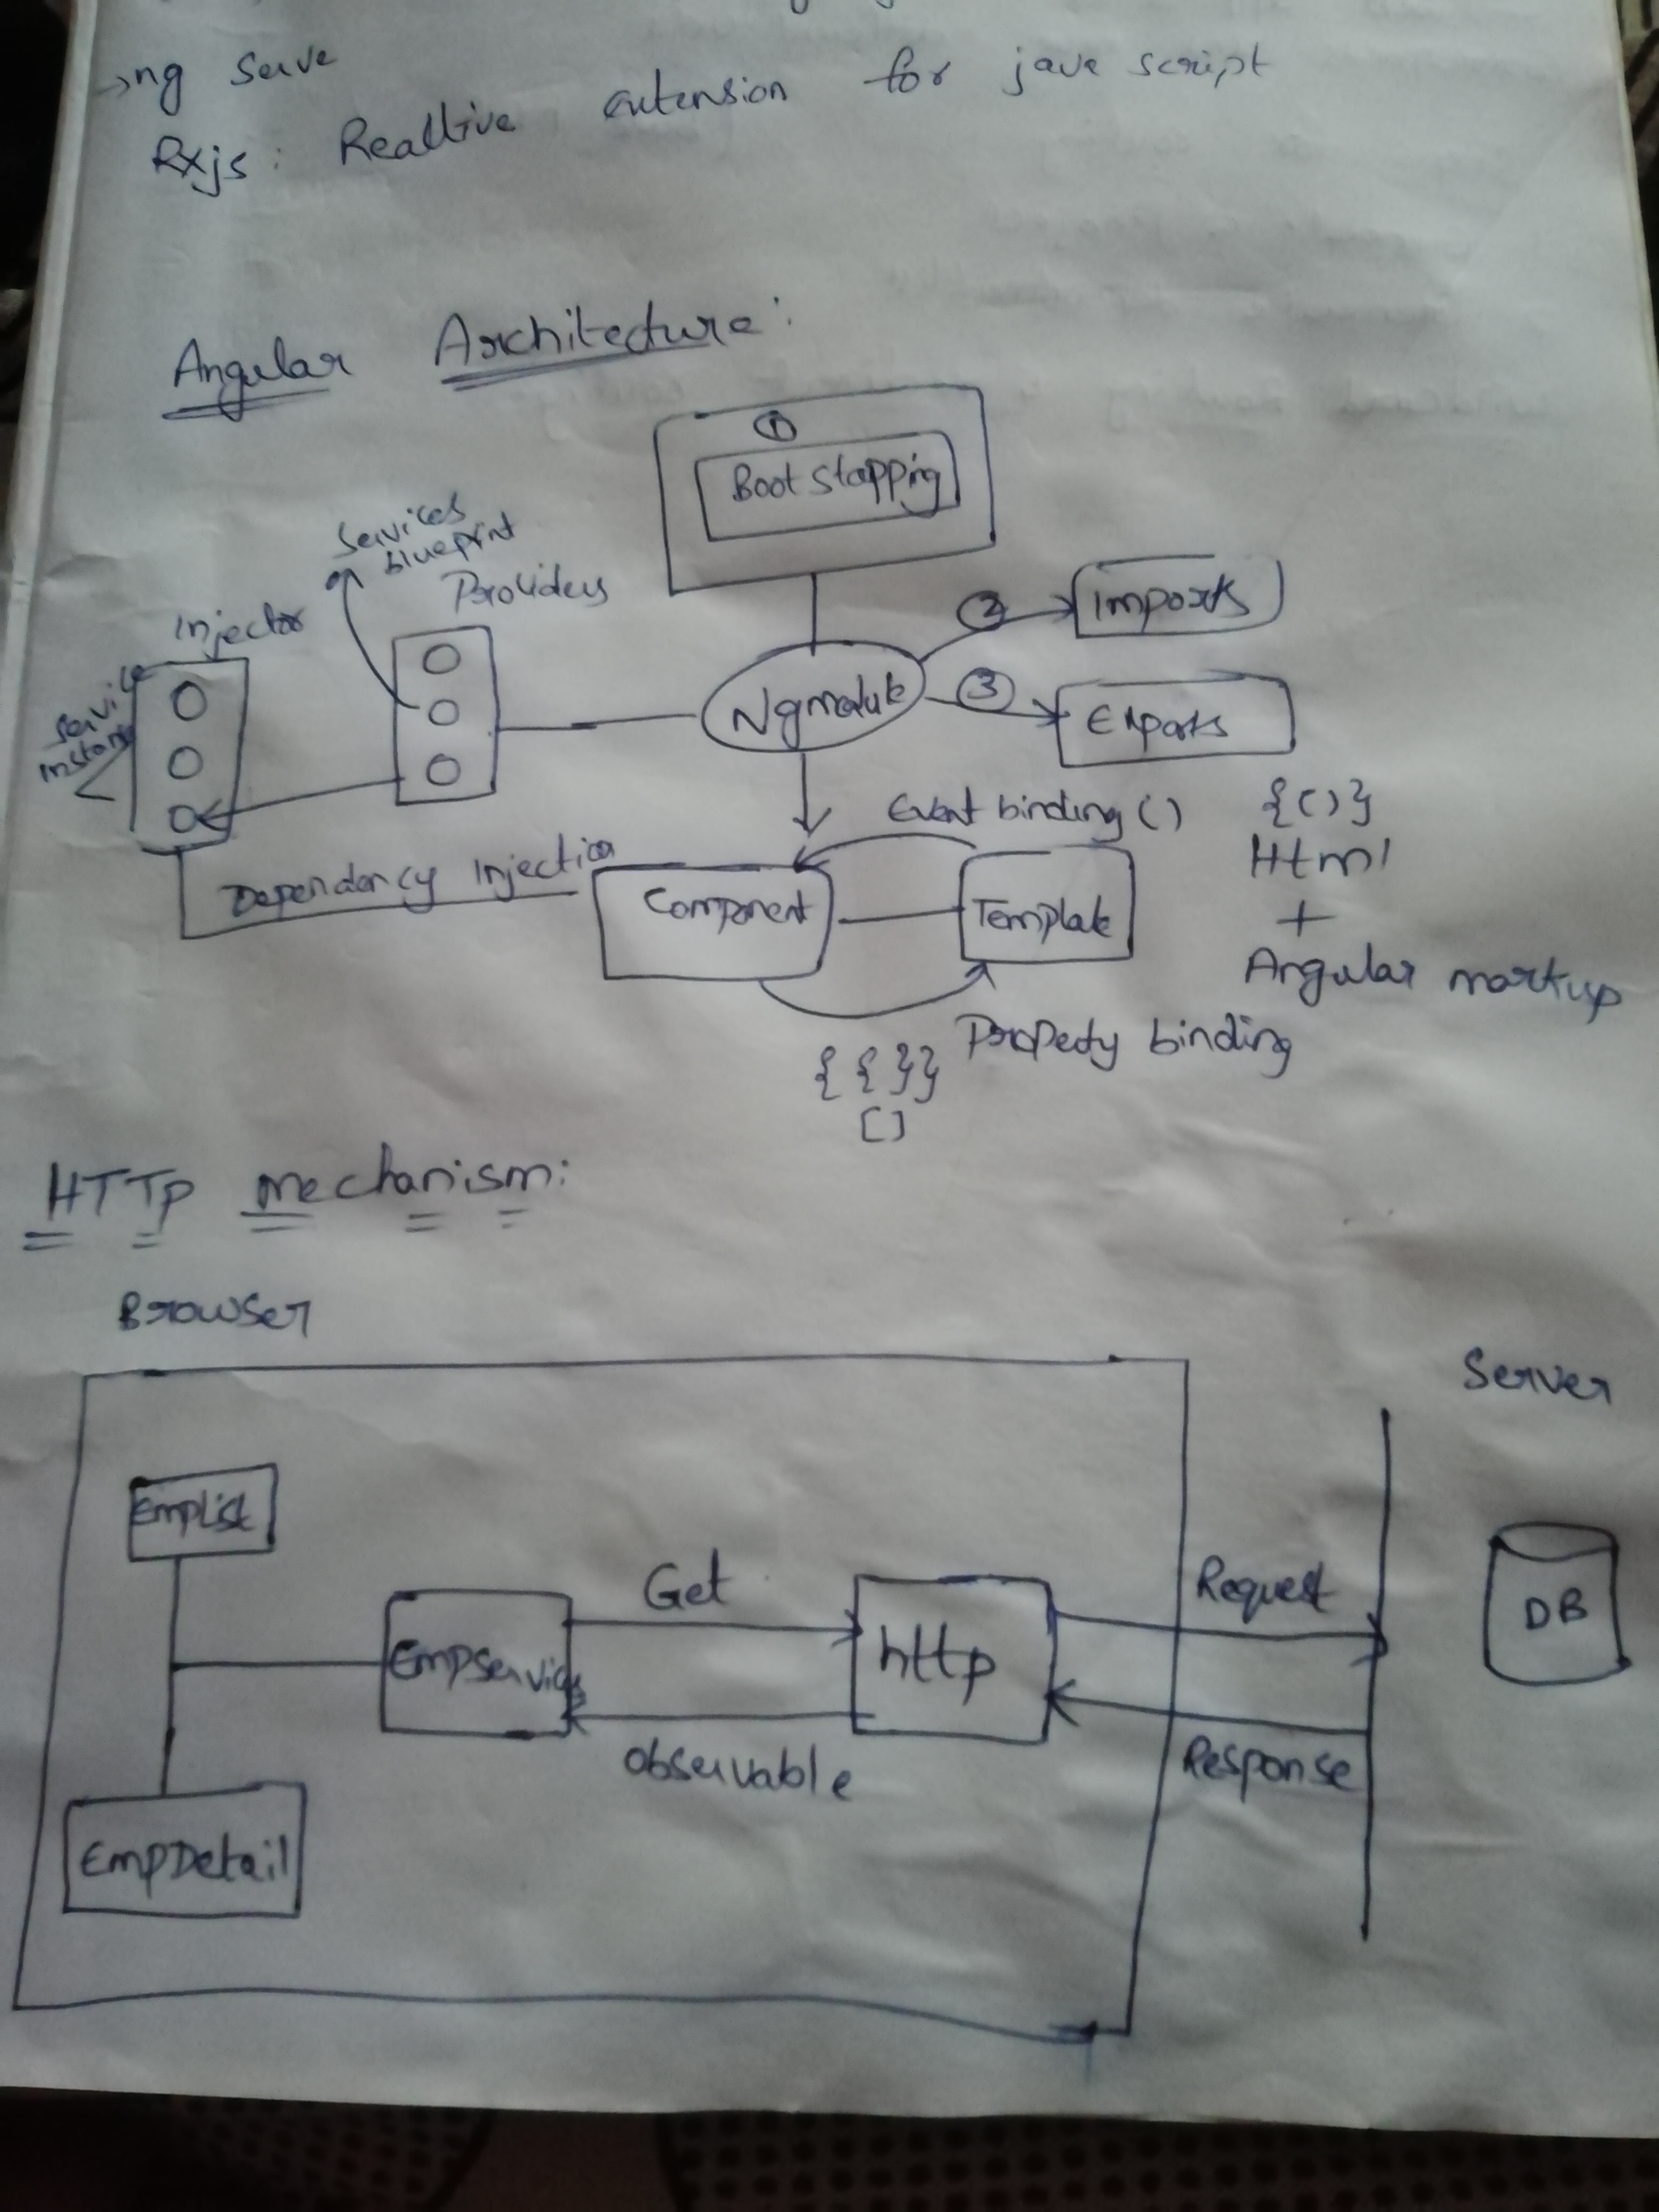 →ng serve
Rxjs : Reactive extension for java script
Angular Architecture:
①
Boot Stapping
Services
blueprint
Providers
Injector
Service
instance
② Imports
Ngmodule
③ Exports
Event binding ()
{()}
Html
+
Angular markup
Dependency Injection
Component
Template
Property binding
{{}}
[]
HTTP mechanism:
Browser
Server
EmpList
Get
Request
DB
Empservice
http
Observable
Response
EmpDetail